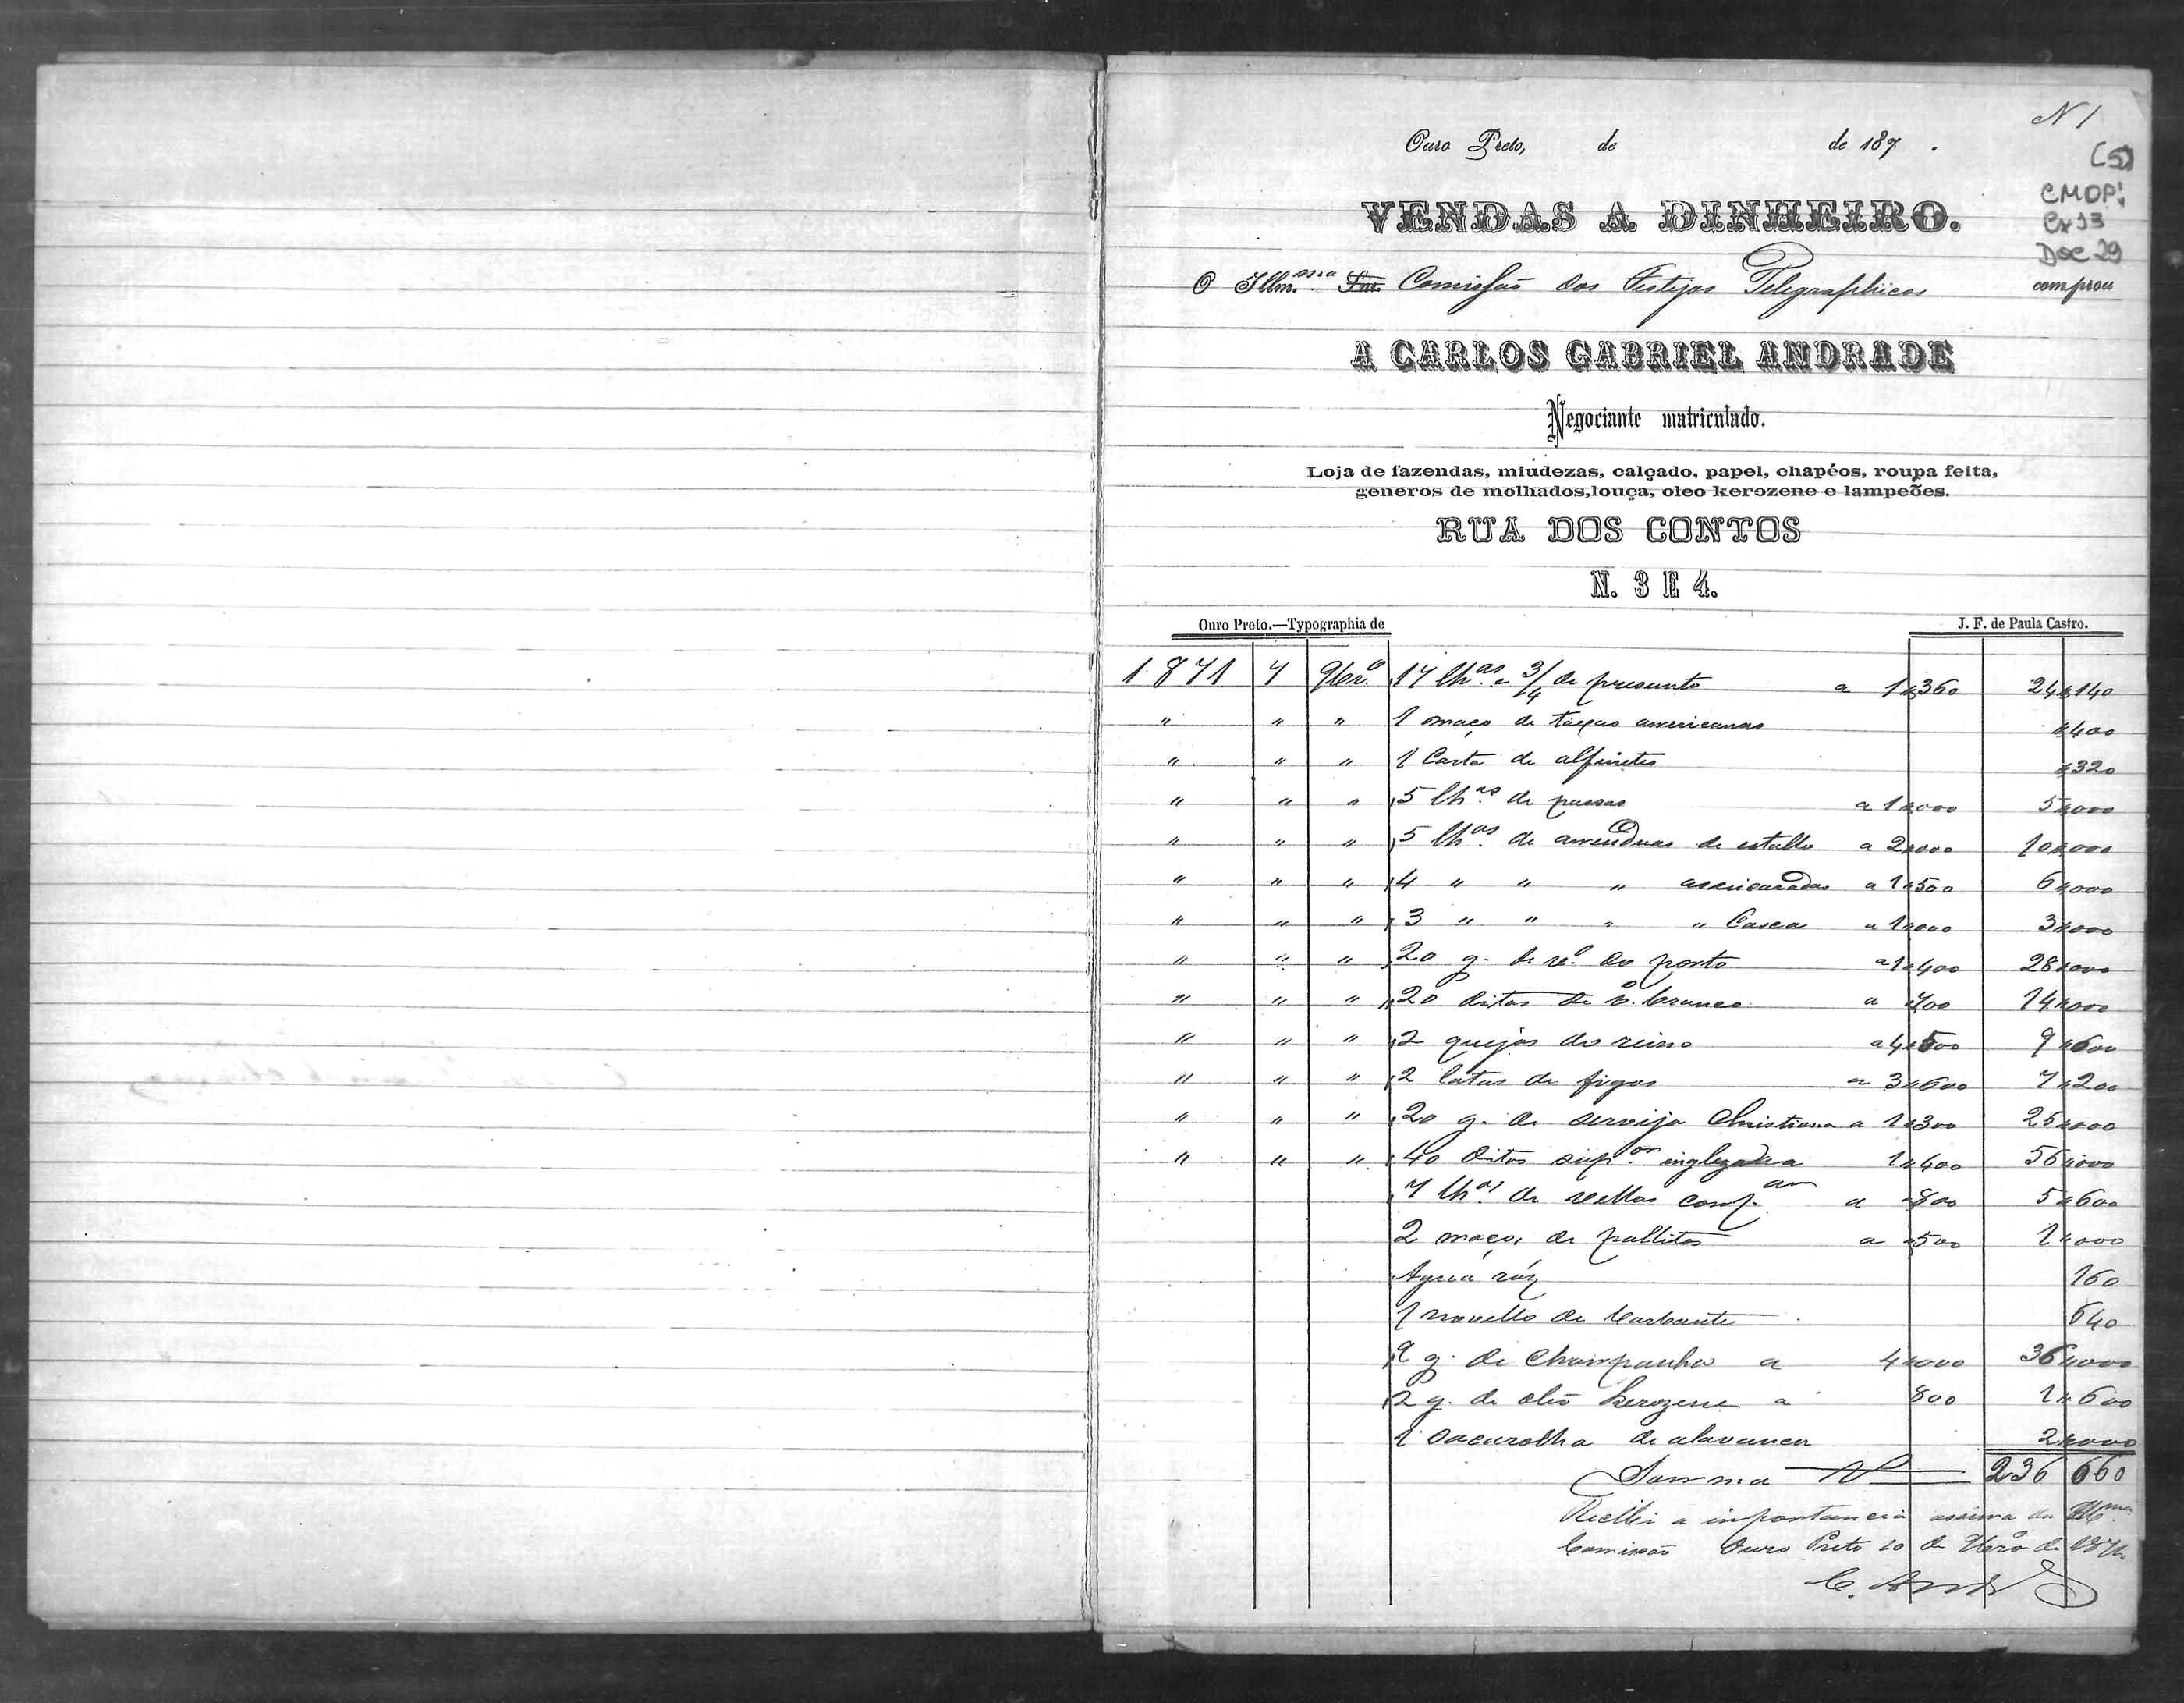 N 1
Ouro Preto, de de 187 .
(5)
CMOP!
Cx 13
Doc 29
VENDAS A DINHEIRO.
O Illm.ma Snr. Comissão dos Festejos Telegraphicos comprou
A CARLOS GABRIEL ANDRADE
Negociante matriculado.
Loja de fazendas, miudezas, calçado, papel, chapéos, roupa feita,
generos de molhados, louça, oleo kerozene e lampeões.
RUA DOS CONTOS
N. 3 E 4.
Ouro Preto.—Typographia de J. F. de Paula Castro.
1871 7 9br.o 17 lb.as e 3/4 de presunto a 1$360 24$140
" " " 1 maço de taxas americanas $400
" " " 1 Carta de alfinetes $320
" " " 5 lb.as de passas a 1$000 5$000
" " " 5 lb.as de amendoas de estallo a 2$000 10$000
" " " 4 " " " assucaradas a 1$500 6$000
" " " 3 " " " " Casca a 1$000 3$000
" " " 20 g. de v.o do porto a 1$400 28$000
" " " 20 ditas de v. branco a $700 14$000
" " " 2 queijos do reino a 4$800 9$600
" " " 2 latas de figos a 3$600 7$200
" " " 20 g. de serveija Christiana a 1$300 26$000
" " " 40 ditas sup.or ingleza a 1$400 56$000
7 lb.as de vellas comp.am a $800 5$600
2 maços de pallitos a $500 1$000
Agua ráz 160
1 novello de barbante 640
9 g. de Champanha a 4$000 36$000
2 g. de oleo kerozene a 800 1$600
1 sacarolha de alavanca 2$000
Somma 236 660
Recebi a importancia assima da Ill.ma
Comissão Ouro Preto 10 de 9bro de 1871